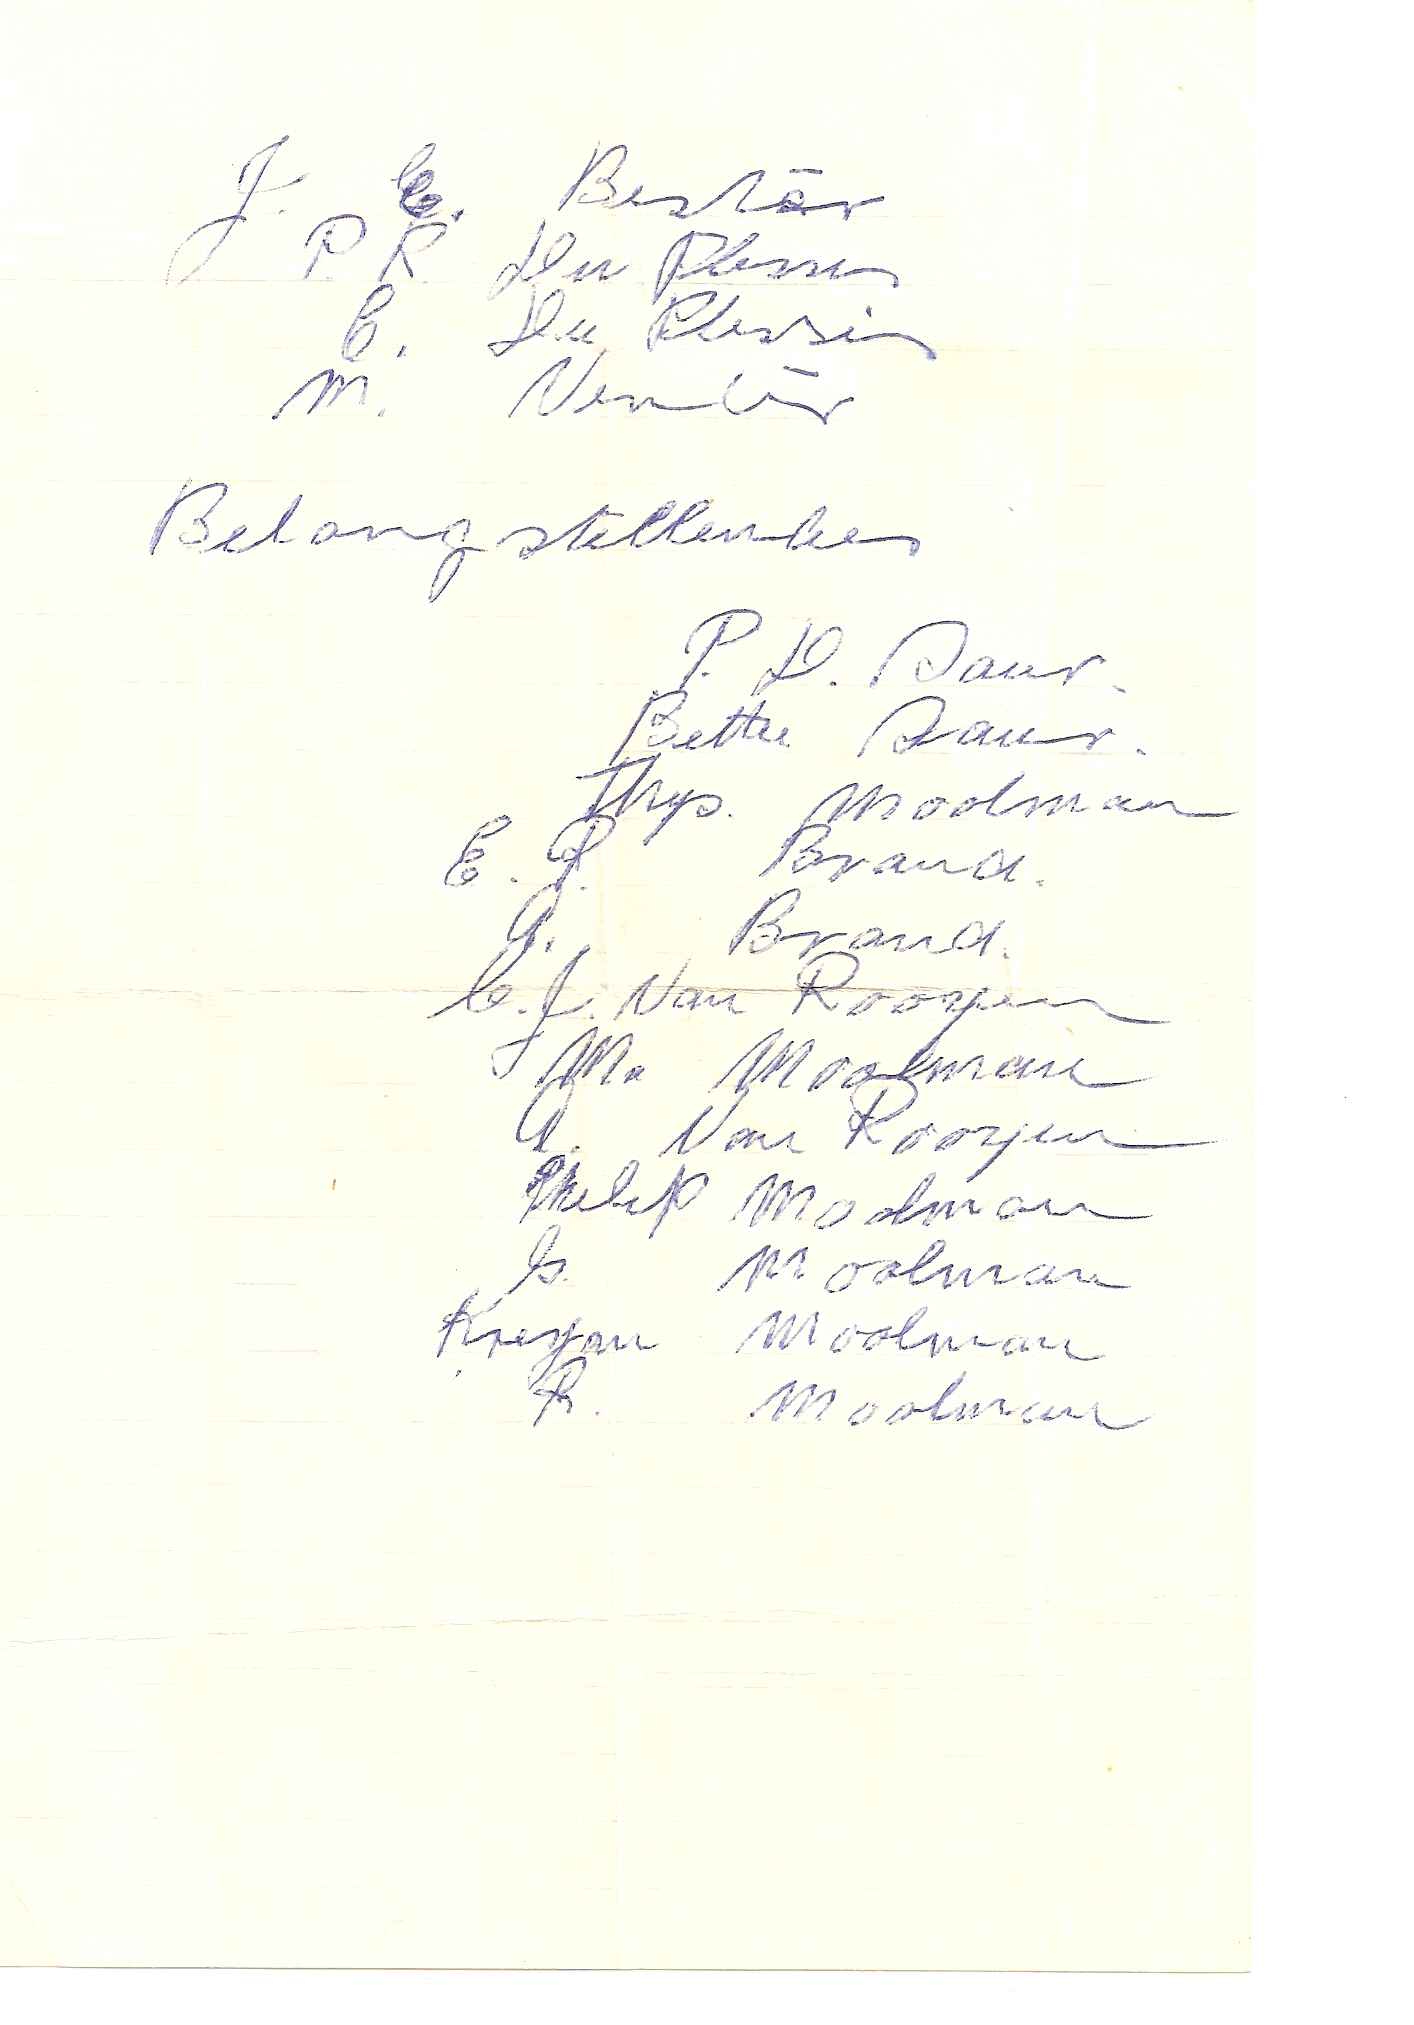 J. C. Bestēr
P. R. Du Plessis
C. Du Plessis
M. Ventēr
Belangstellendes
P. D. Saur.
Bettie Saur.
Thys. Moolman
E. P. Brand.
A. Brand.
C. J. Van Rooyen
Ma Moolman
A. Van Rooyen
Philip Moolman
G. Moolman
Moolman
R. Moolman